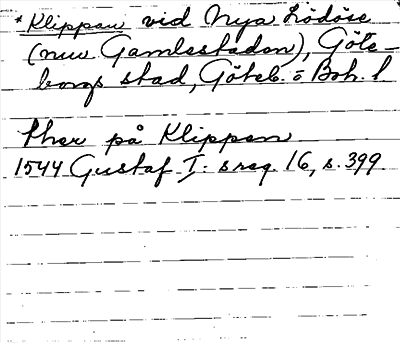 * Klippan vid Nya Lödöse
(nuv. Gamlestaden), Göte-
borgs stad, Göteb. o Boh. l
ther på Klippan
1544 Gustaf I: s reg. 16, s. 399